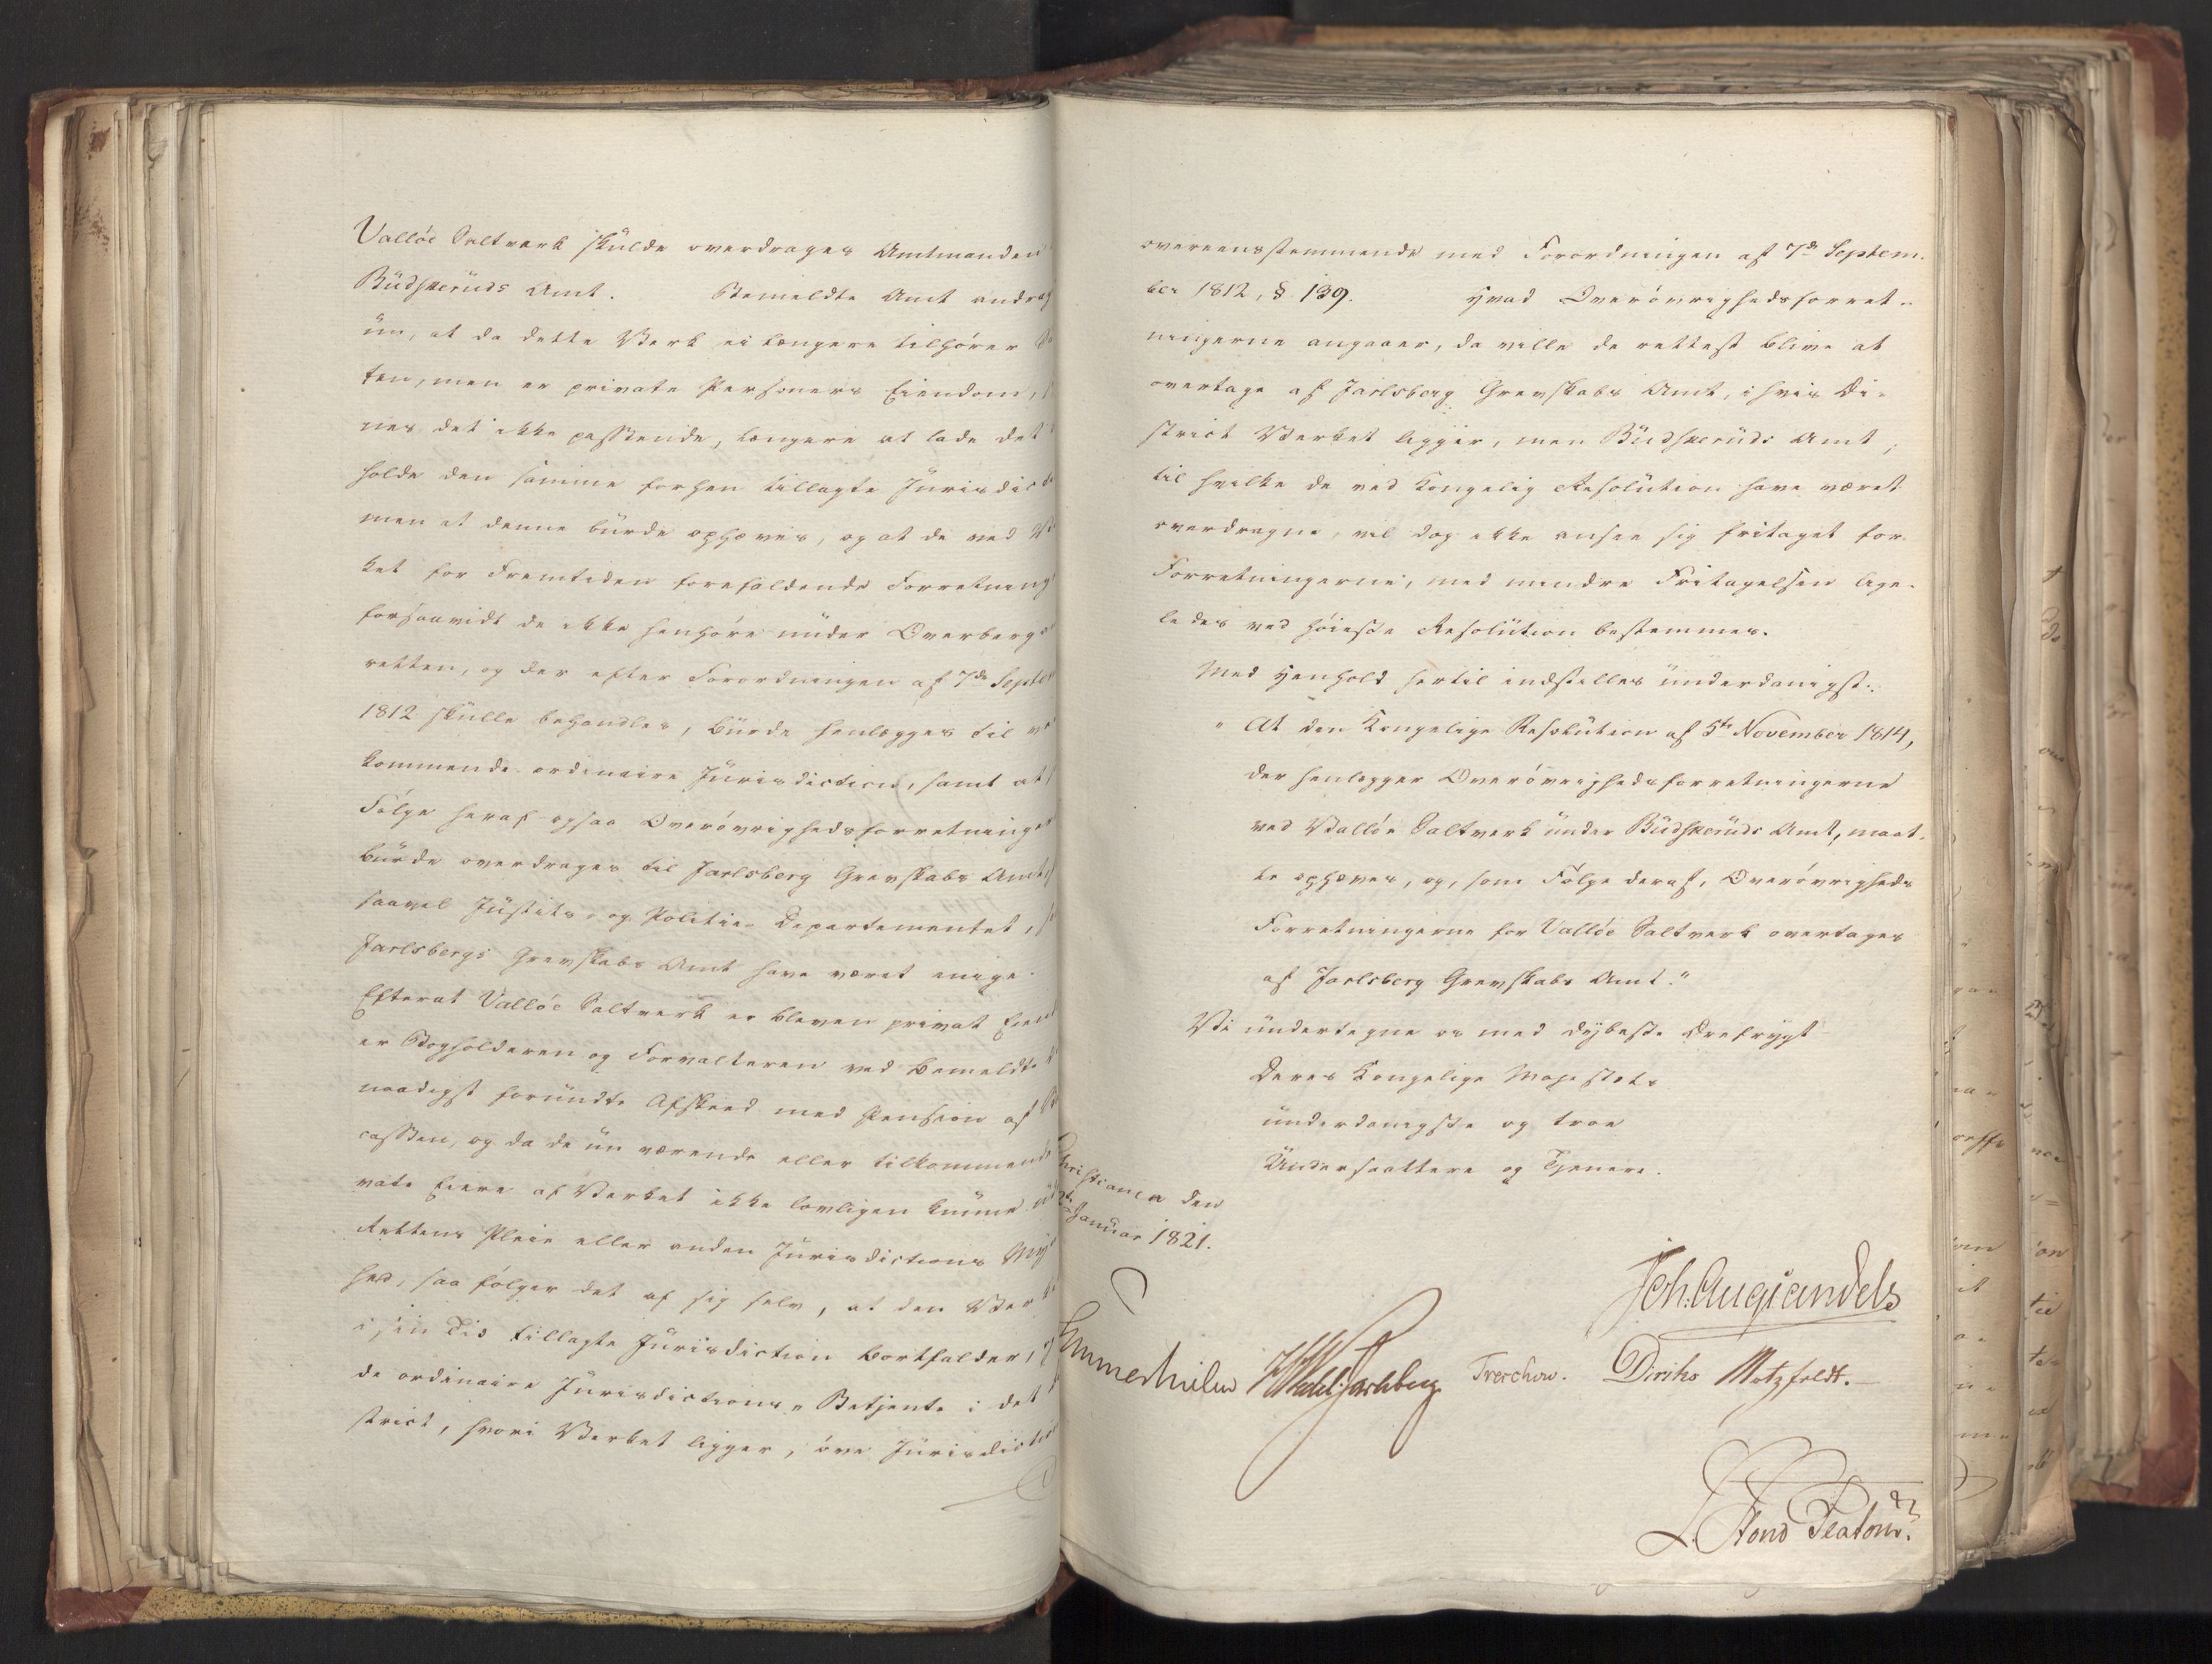 Valløe Saltverk skulde overdrages Amtmanden
Budskeruds Amt. Bemeldte Amt andrag
nu, at da dette Verk ei længere tilhører
ten, men er private Personers Eiendom,
nes det ikke passende, længere at lade det
holde den samme forhen tillagte Jurisdict
men at denne burde ophæves, og at de ved Ve
ket for Fremtiden forefaldende Forretning
forsaavidt de ikke henhøre under Overberg
retten, og der efter Forordningen af 7de Septem
1812 skulle behandles, burde henlægges til ved
kommende ordinaire Jurisdiction, samt at
Følge heraf ogsaa Overøvrighedsforretninger
burde overdrages til Jarlsberg Grevskabs Amt,
saavel Justits- og Politie-Departementet,
Jarlsbergs Grevskabs Amt have været enige.
Efterat Valløe Saltverk er bleven privat Eien
er Bogholderen og Forvalteren ved bemeldte
naadigst forundte Afskeed med Pension af
cassen, og da de nu værende eller tilkommende
vate Eiere af Verket ikke lovligen kunne
Rettens Pleie eller anden Jurisdictions Myn
hed, saa følger det af sig selv, at den Ver
i sin Tid tillagte Jurisdiction bortfalder,
de ordinaire Jurisdictions-Betjente i det
strict, hvori Verket ligger, øve Jurisdiction
overeensstemmende med Forordningen af 7de Septem-
ber 1812, § 139. Hvad Overøvrighedsforret-
ningerne angaaer, da ville de rettest blive at
overtage af Jarlsberg Grevskabs Amt, i hvis Di-
strict Værket ligger, men Budskeruds Amt,
til hvilke de ved Kongelig Resolution have været
overdragne, vil dog ikke ansee sig fritaget for
Forretningerne, med mindre Fritagelsen lige-
ledes ved høieste Resolution bestemmes.
Med Henhold hertil indstilles underdanigst:
"At den Kongelige Resolution af 5te November 1814,
der henlægger Overøvrighedsforretningerne
ved Valløe Saltverk under Budskeruds Amt, maat-
te ophæves, og, som Følge deraf, Overøvrigheds
Forretningerne for Valløe Saltverk overtages
af Jarlsberg Grevskabs Amt."
Vi undertegne os med dybeste Ærefrygt
Deres Kongelige Majestæts
underdanigste og troe
Undersaattere og Tjenere.
Christiania den
Januar 1821.
Joh. Aug. Sandels
Sommerhielm HWedel Jarlsberg Treschow. Diriks Motzfeldt.
L. Stoud Platou.